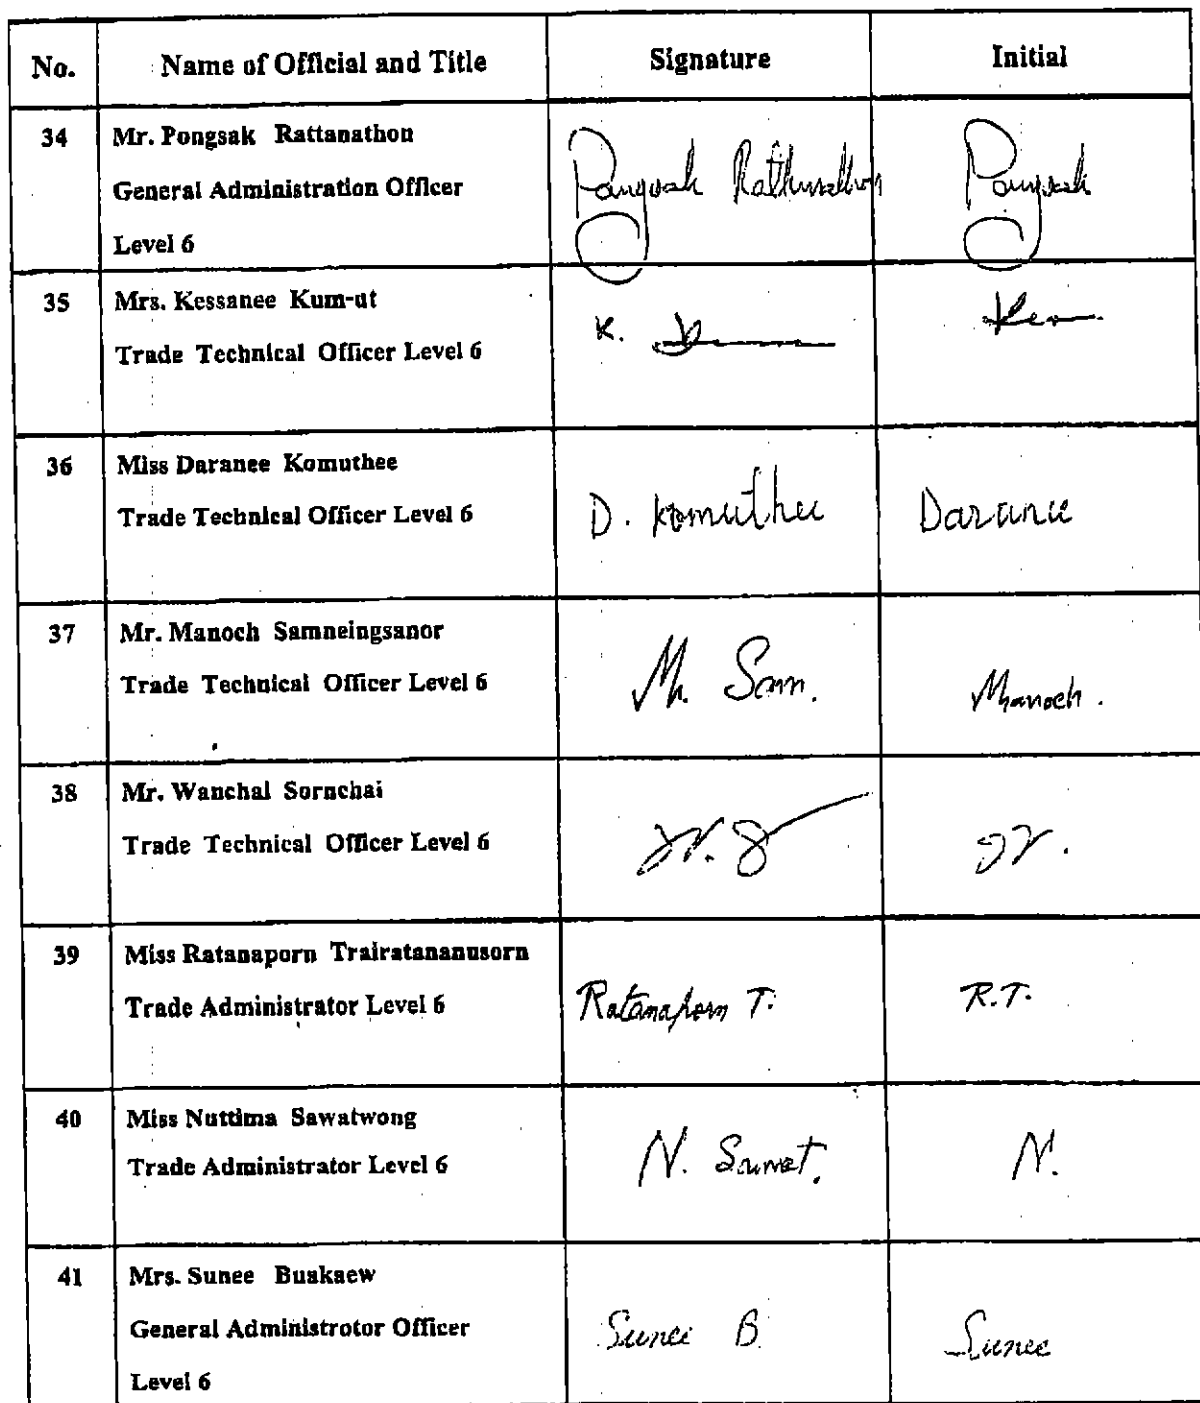 No. Name of Official and Title Signature Initial
34 Mr. Pongsak Rattanathon
General Administration Officer
Level 6
Pongsak Rattanathon Pongsak
35 Mrs. Kessanee Kum-ut
Trade Technical Officer Level 6
K.
36 Miss Daranee Komuthee
Trade Technical Officer Level 6
D. Komuthee Daranee
37 Mr. Manoch Samneingsanor
Trade Technical Officer Level 6
M. Sam. Manoch.
38 Mr. Wanchai Sornchai
Trade Technical Officer Level 6
39 Miss Ratanaporn Trairatananusorn
Trade Administrator Level 6
Ratanaporn T. R.T.
40 Miss Nuttima Sawatwong
Trade Administrator Level 6
N. Sawat. N.
41 Mrs. Sunee Buakaew
General Administrotor Officer
Level 6
Sunee B. Sunee